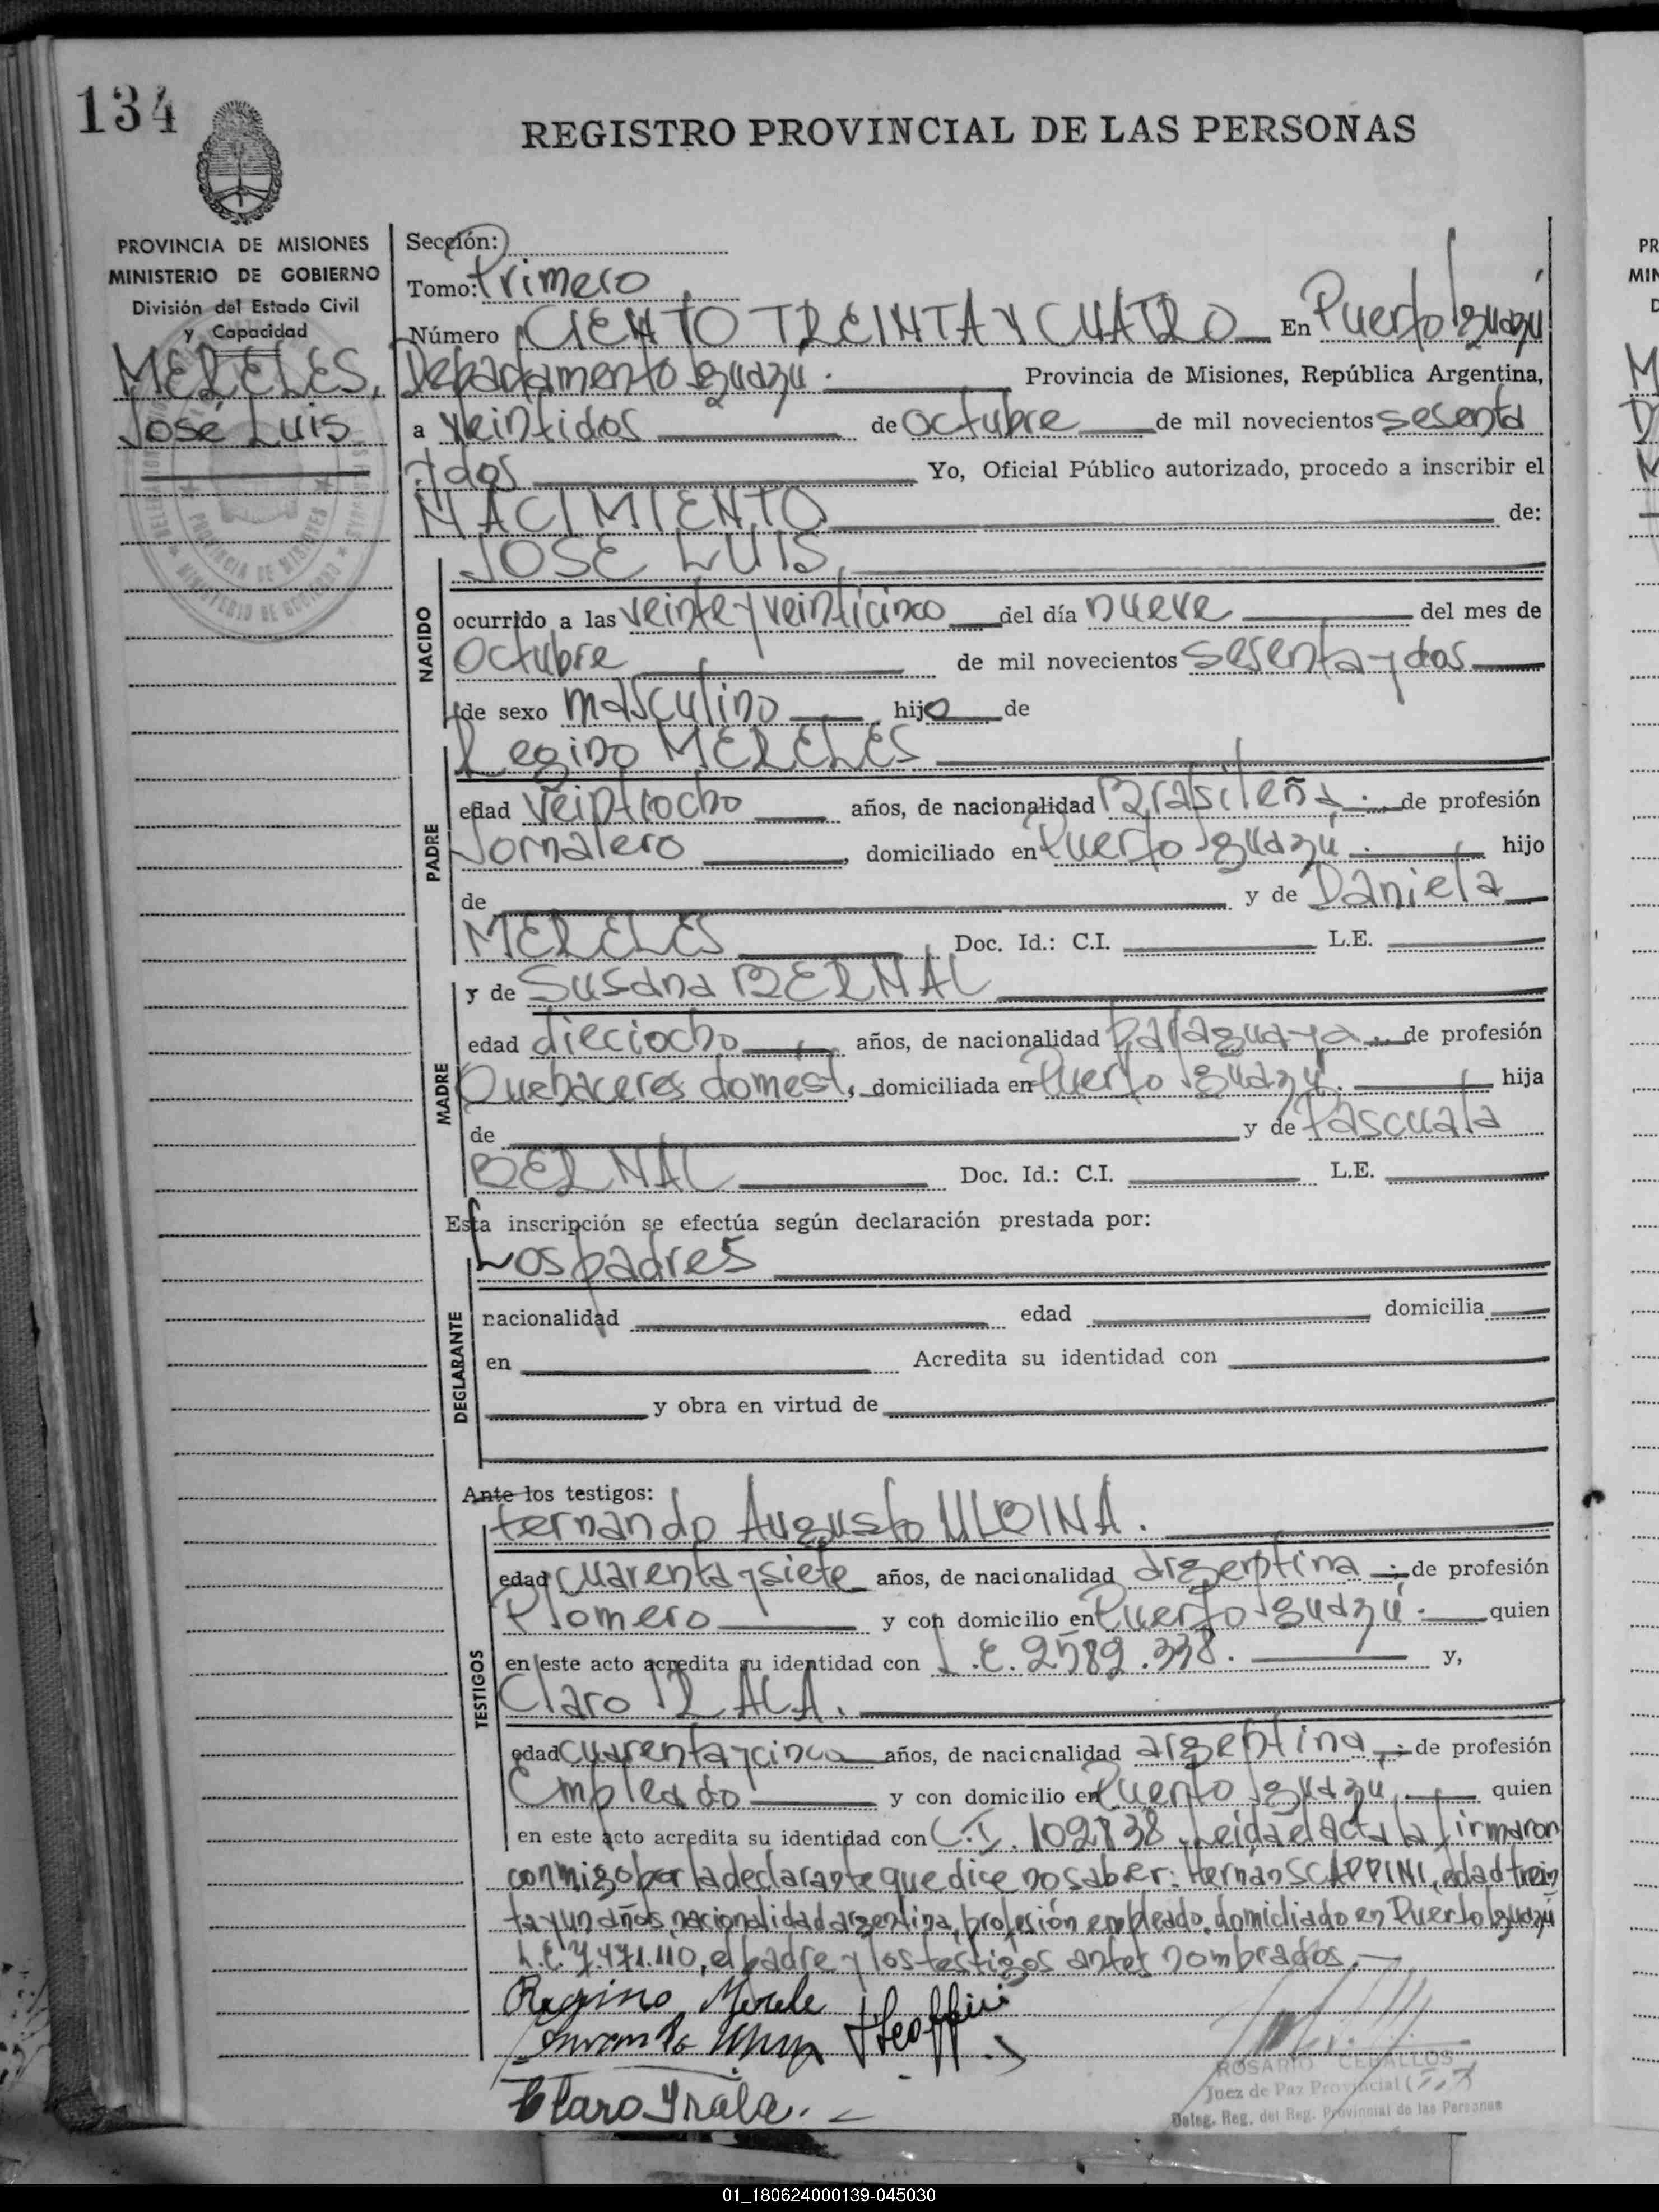 134
REGISTRO PROVINCIAL DE LAS PERSONAS
PROVINCIA DE MISIONES
MINISTERIO DE GOBIERNO
División del Estado Civil
y Capacidad
MERELES,
José Luis
Sección:
Tomo: Primero
Número CIENTO TREINTA Y CUATRO En Puerto Iguazú
Departamento Iguazú. Provincia de Misiones, República Argentina,
a veintidos de octubre de mil novecientos sesenta
y dos Yo, Oficial Público autorizado, procedo a inscribir el
NACIMIENTO de:
JOSE LUIS,
NACIDO
ocurrido a las veinte y veinticinco del día nueve del mes de
Octubre de mil novecientos sesenta y dos
de sexo masculino hijo de
Regino MERELES
PADRE
edad veintiocho años, de nacionalidad Brasileña. de profesión
Jornalero, domiciliado en Puerto Iguazú. hijo
de y de Daniela
MERELES Doc. Id.: C.I. L.E.
y de Susana BERNAL
MADRE
edad dieciocho años, de nacionalidad Paraguaya de profesión
Quehaceres domest. domiciliada en Puerto Iguazú. hija
de y de Pascuala
BERNAL Doc. Id.: C.I. L.E.
Esta inscripción se efectúa según declaración prestada por:
Los padres
DECLARANTE
nacionalidad edad domicilia
en Acredita su identidad con
y obra en virtud de
Ante los testigos:
Fernando Augusto
TESTIGOS
edad cuarenta y siete años, de nacionalidad argentina de profesión
Plomero y con domicilio en Puerto Iguazú. quien
en este acto acredita su identidad con L.E. 2582.338. y,
Claro IRALA.
edad cuarenta y cinco años, de nacionalidad argentina, de profesión
Empleado y con domicilio en Puerto Iguazú, quien
en este acto acredita su identidad con C.I. 102838. Leida el acta la firmaron
conmigo por la declarante que dice no saber: Hernán SCAPPINI, edad trein
ta y un años, nacionalidad argentina, profesión empleado, domicliado en Puerto Iguazú
L.E. 7.471.110, el padre y los testigos antes nombrados.
Regino Merele
Claro Yrala.
ROSARIO CEBALLOS
Juez de Paz Provincial
Deleg. Reg. del Reg. Provincial de las Personas
01_180624000139-045030